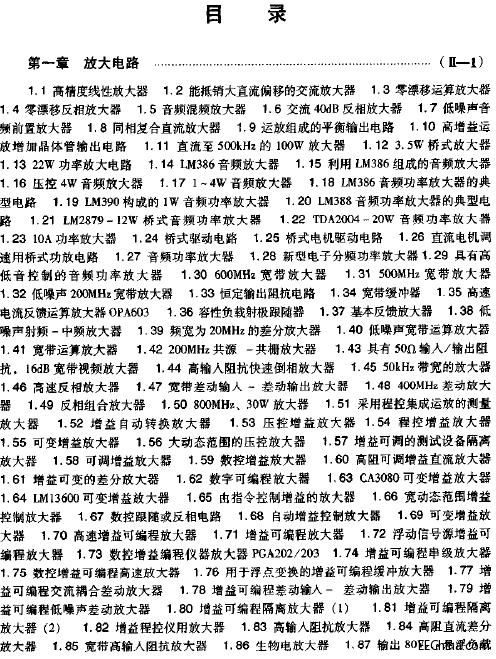 目 录
第一章 放大电路 ……………………………………………………… (Ⅱ—1)
1.1 高精度线性放大器 1.2 能抵销大直流偏移的交流放大器 1.3 零漂移运算放大器
1.4 零漂移反相放大器 1.5 音频混频放大器 1.6 交流40dB反相放大器 1.7 低噪声音
频前置放大器 1.8 同相复合直流放大器 1.9 运放组成的平衡输出电路 1.10 高增益运
放增加晶体管输出电路 1.11 直流至500kHz的100W放大器 1.12 3.5W桥式放大器
1.13 22W功率放大电路 1.14 LM386音频放大器 1.15 利用LM386组成的音频放大器
1.16 压控4W音频放大器 1.17 1~4W音频放大器 1.18 LM386音频功率放大器的典
型电路 1.19 LM390构成的1W音频功率放大器 1.20 LM388音频功率放大器的典型电
路 1.21 LM2879-12W桥式音频功率放大器 1.22 TDA2004-20W音频功率放大器
1.23 10A功率放大器 1.24 桥式驱动电路 1.25 桥式电机驱动电路 1.26 直流电机调
速用桥式功放电路 1.27 音频功率放大器 1.28 新型电子分频功率放大器 1.29 具有高
低音控制的音频功率放大器 1.30 600MHz宽带放大器 1.31 500MHz宽带放大器
1.32 低噪声200MHz宽带放大器 1.33 恒定输出阻抗电路 1.34 宽带缓冲器 1.35 高速
电流反馈运算放大器OPA603 1.36 容性负载射极跟随器 1.37 基本反馈放大器 1.38 低
噪声射频-中频放大器 1.39 频宽为20MHz的差分放大器 1.40 低噪声宽带运算放大器
1.41 宽带运算放大器 1.42 200MHz共源-共栅放大器 1.43 具有50Ω输入/输出阻
抗,16dB宽带视频放大器 1.44 高输入阻抗快速倒相放大器 1.45 50kHz带宽的放大器
1.46 高速反相放大器 1.47 宽带差动输入-差动输出放大器 1.48 400MHz差动放大
器 1.49 反相组合放大器 1.50 800MHz、30W放大器 1.51 采用程控集成运放的测量
放大器 1.52 增益自动转换放大器 1.53 压控增益放大器 1.54 程控增益放大器
1.55 可变增益放大器 1.56 大动态范围的压控放大器 1.57 增益可调的测试设备隔离
放大器 1.58 可调增益放大器 1.59 数控增益放大器 1.60 高阻可调增益直流放大器
1.61 增益可变的差分放大器 1.62 数字可编程放大器 1.63 CA3080可变增益放大器
1.64 LM13600可变增益放大器 1.65 由指令控制增益的放大器 1.66 宽动态范围增益
控制放大器 1.67 数控跟随或反相电路 1.68 自动增益控制放大器 1.69 可变增益放
大器 1.70 高速增益可编程放大器 1.71 增益可编程放大器 1.72 浮动信号源增益可
编程放大器 1.73 数控增益编程仪器放大器PGA202/203 1.74 增益可编程串级放大器
1.75 数控增益可编程高速放大器 1.76 用于浮点变换的增益可编程缓冲放大器 1.77 增
益可编程交流耦合差动放大器 1.78 增益可编程差动输入-差动输出放大器 1.79 增
益可编程低噪声差动放大器 1.80 增益可编程隔离放大器(1) 1.81 增益可编程隔离
放大器(2) 1.82 增益程控仪用放大器 1.83 高输入阻抗放大器 1.84 高阻直流差分
放大器 1.85 宽带高输入阻抗放大器 1.86 生物电放大器 1.87 输出